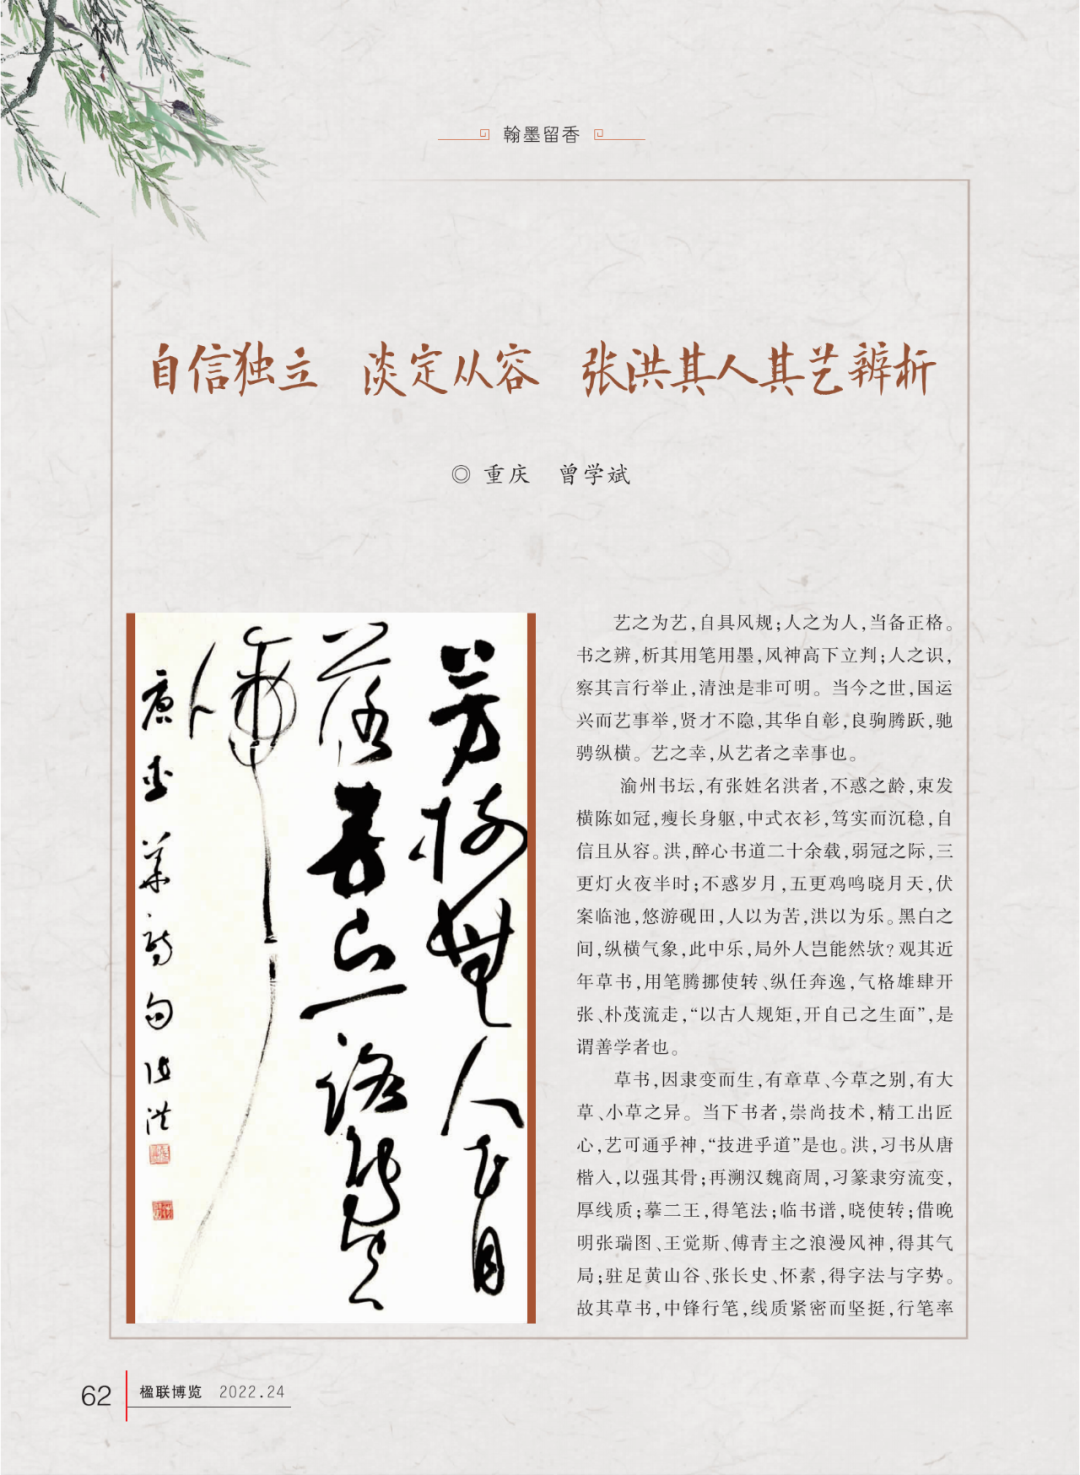 翰墨留香
自信独立 淡定从容 张洪其人其艺辨析
◎ 重庆 曾学斌
芳樹無人花自
落春山一路鳥空
啼
唐李華詩句 張洪
艺之为艺,自具风规;人之为人,当备正格。
书之辨,析其用笔用墨,风神高下立判;人之识,
察其言行举止,清浊是非可明。当今之世,国运
兴而艺事举,贤才不隐,其华自彰,良驹腾跃,驰
骋纵横。艺之幸,从艺者之幸事也。
渝州书坛,有张姓名洪者,不惑之龄,束发
横陈如冠,瘦长身躯,中式衣衫,笃实而沉稳,自
信且从容。洪,醉心书道二十余载,弱冠之际,三
更灯火夜半时;不惑岁月,五更鸡鸣晓月天,伏
案临池,悠游砚田,人以为苦,洪以为乐。黑白之
间,纵横气象,此中乐,局外人岂能然欤?观其近
年草书,用笔腾挪使转、纵任奔逸,气格雄肆开
张、朴茂流走,“以古人规矩,开自己之生面”,是
谓善学者也。
草书,因隶变而生,有章草、今草之别,有大
草、小草之异。当下书者,崇尚技术,精工出匠
心,艺可通乎神,“技进乎道”是也。洪,习书从唐
楷入,以强其骨;再溯汉魏商周,习篆隶穷流变,
厚线质;摹二王,得笔法;临书谱,晓使转;借晚
明张瑞图、王觉斯、傅青主之浪漫风神,得其气
局;驻足黄山谷、张长史、怀素,得字法与字势。
故其草书,中锋行笔,线质紧密而坚挺,行笔率
62 楹联博览 2022.24